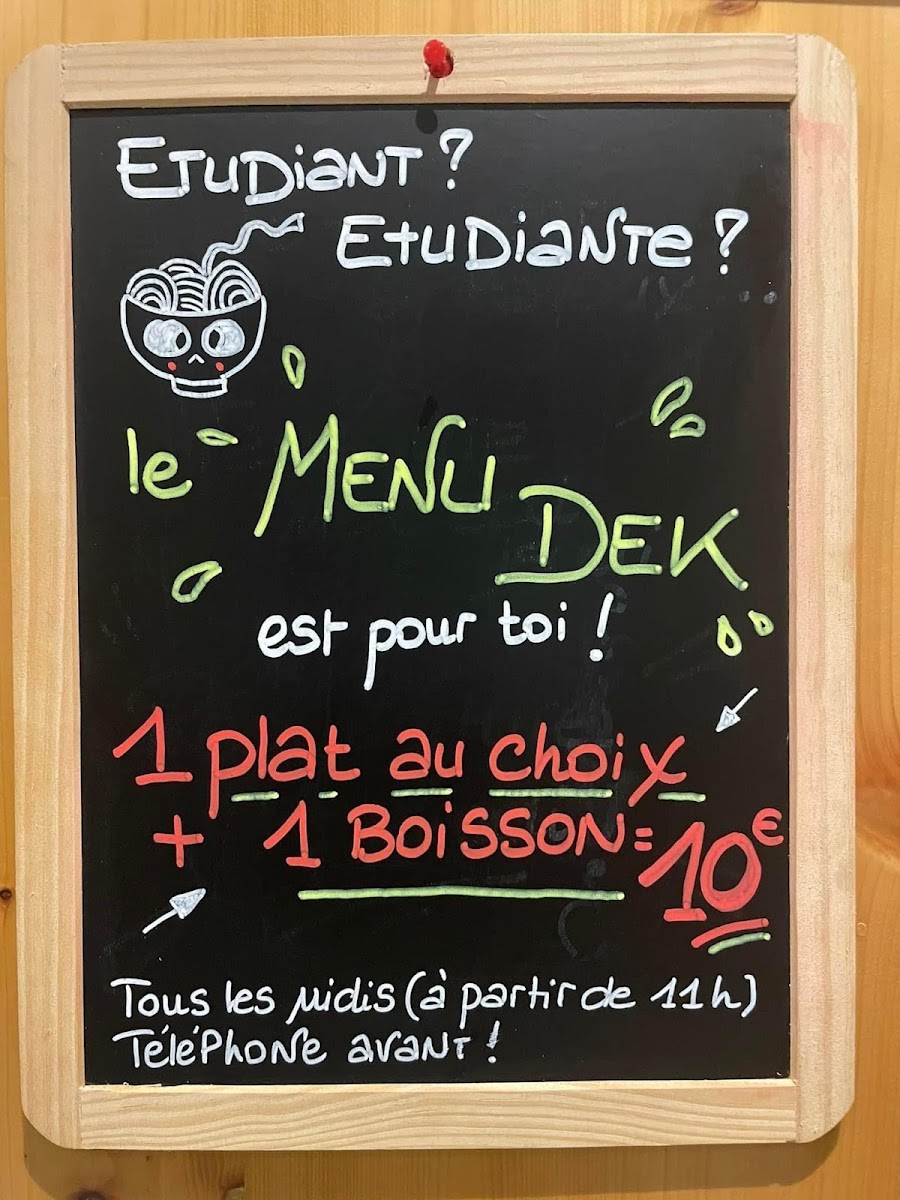 ETUDIANT ?
ETUDIANTE ?
le MENU DEK
est pour toi !
1 plat au choix
+ 1 BOISSON = 10€
Tous les midis (à partir de 11h)
TéléPhone avant !